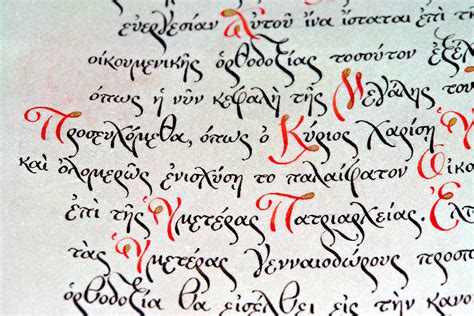 εὐεργεσίαν Αὐτοῦ ἵνα ἵσταται ἐπὶ τ
οἰκουμενικῆς ὀρθοδοξίας τοσοῦτον ἐξέ
ὅπως ἡ νῦν κεφαλὴ τῆς Μεγάλης τοῦ
Προσευχόμεθα, ὅπως ὁ Κύριος χαρίση
καὶ ὁλομερῶς ἐνισχύση τὸ παλαίφατον Οἰκο
ἐπὶ τῆς Ὑμετέρας Πατριαρχείας. Ἐλ
τὰς Ὑμετέρας γενναιοδώρους προσπ
ὀρθοδοξία θὰ εἰσέλθει εἰς τὴν κανο